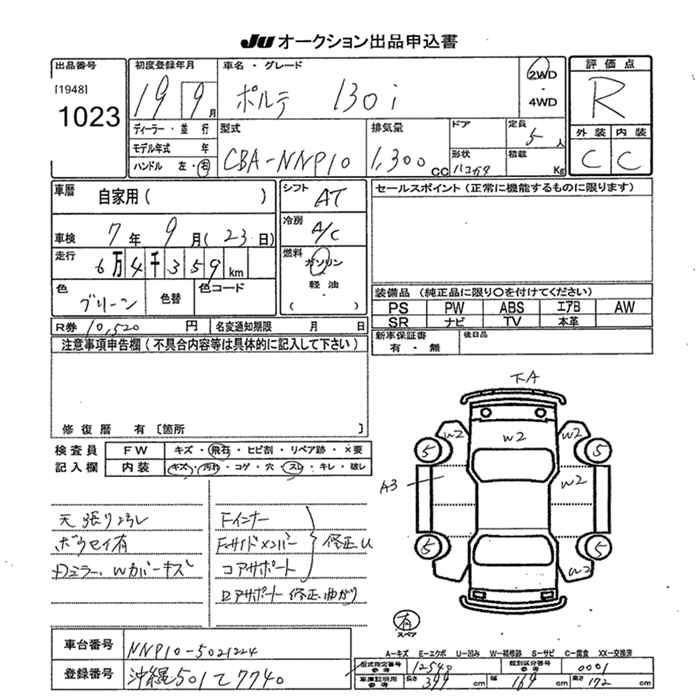 JU オークション出品申込書
出品番号
[1948]
1023
初度登録年月
19 9月
車名・グレード
ポルテ 130i
2WD
・
4WD
評価点
R
外装 内装
C C
ディーラー・並行
モデル年式 年
ハンドル 左・右
型式
CBA-NNP10
排気量
1,300 CC
ドア
形状
ハコガタ
定員
5人
積載
Kg
車歴
自家用( )
車検
7年 9月(23日)
走行
6万4千359km
色
グリーン
色替
色コード
シフト
AT
冷房
A/C
燃料
ガソリン
軽油
・
( )
セールスポイント(正常に機能するものに限ります)
装備品(純正品に限り○を付けてください)
PS PW ABS エアB AW
SR ナビ TV 本革
R券 10,520円
名変通知期限 月 日
新車保証書
有・無
後日品
注意事項申告欄(不具合内容等は具体的に記入して下さい)
修復歴 有[箇所 ]
検査員
記入欄
FW キズ・飛石・ヒビ割・リペア跡・×要
内装 キズ・汚れ・コゲ・穴・スレ・キレ・破レ
天張りヨゴレ
ボウセイ有
Fインナー
Fサイドメンバー
コアサポート
修正U
Rアサポート 修正、曲がり
下A
W2 W2 W2
5 5
A3 W2
5 5
W2
有
スペア
A-キズ E-エクボ U-凹み W-補修跡 S-サビ C-腐食 XX-交換済
車台番号
NNP10-5021224
登録番号
沖縄501て7740
型式指定番号
参考
12540
類別区分番号
参考
0001
車庫証明用
参考
長さ 399cm
幅 169cm
高さ 172cm